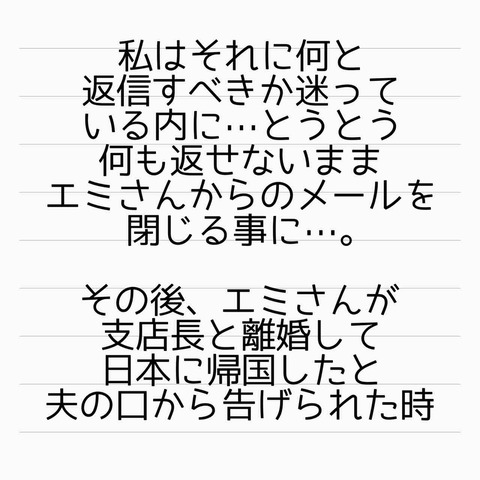 私はそれに何と
返信すべきか迷って
いる内に…とうとう
何も返せないまま
エミさんからのメールを
閉じる事に…。
その後、エミさんが
支店長と離婚して
日本に帰国したと
夫の口から告げられた時